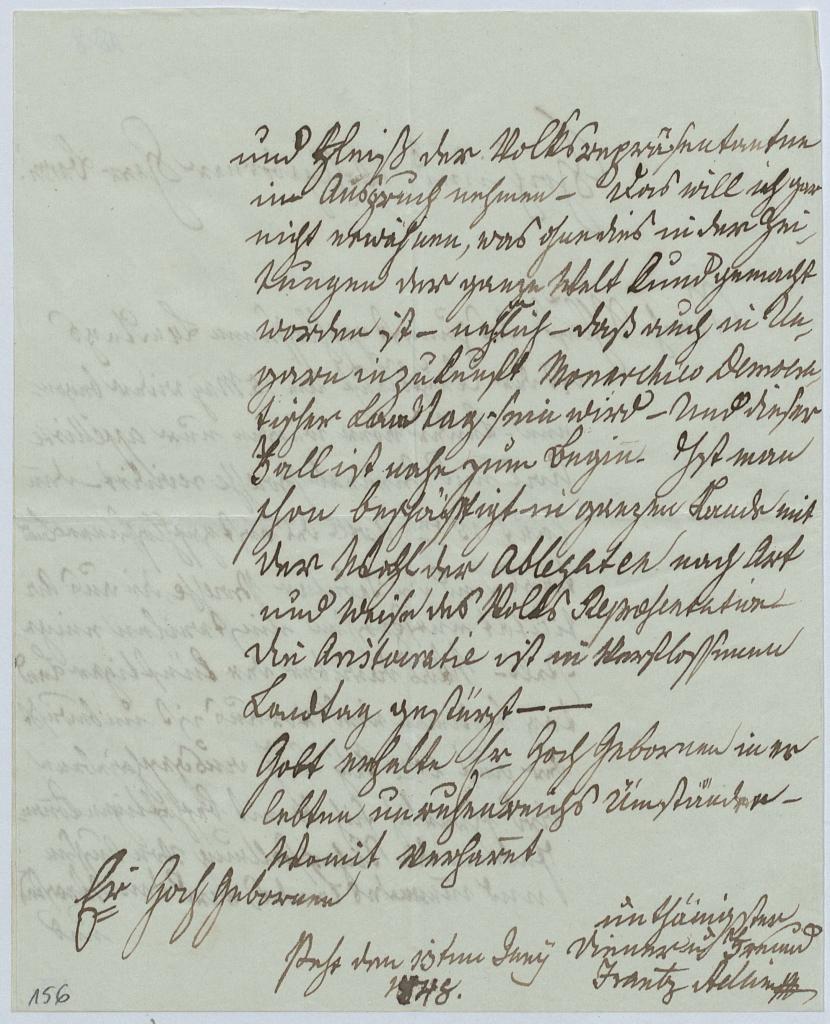 und Fleiß der Volksrepräsentanten
in Anspruch nehmen – Das will ich gar
nicht erwähnen, was ohnedies in der Zei-
tungen der ganze Welt kund gemacht
worden ist – nehlich – daß auch in Un-
garn inzukunft Monarchico Democra-
tischer Landtag sein wird – Und dieser
Fall ist nahe zum Begin̄. Ist man
schon beschäftigt in ganzen Lande mit
der Wahl der Ablegaten nach Art
und Weise des Volks Repraesentation
die Aristocratie ist in Verflossenen
Landtag gestürzt – –
Gott erhalte Er Hoch Gebornen in er
lebten unruhenreichs Umständen –
Womit verharret
Er Hoch Gebornen
unthänigster
Diener u Freund
Pest den 13ten Juny
Frantz
1848.
156